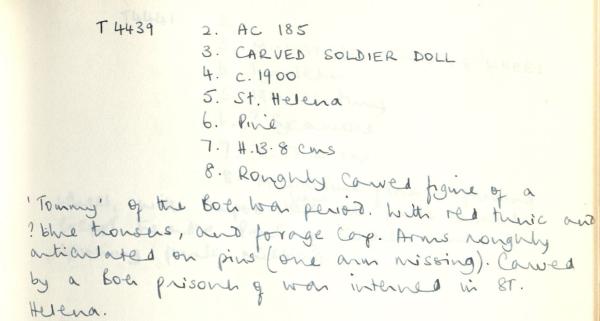 T 4439 2. AC 185
3. CARVED SOLDIER DOLL
4. c. 1900
5. St. Helena
6. Pine
7. H. 13.8 cms
8. Roughly carved figure of a
'Tommy' of the Boer War period. With red tunic and
? blue trousers, and forage cap. Arms roughly
articulated on pins (one arm missing). Carved
by a Boer prisoner of war interned in ST.
Helena.